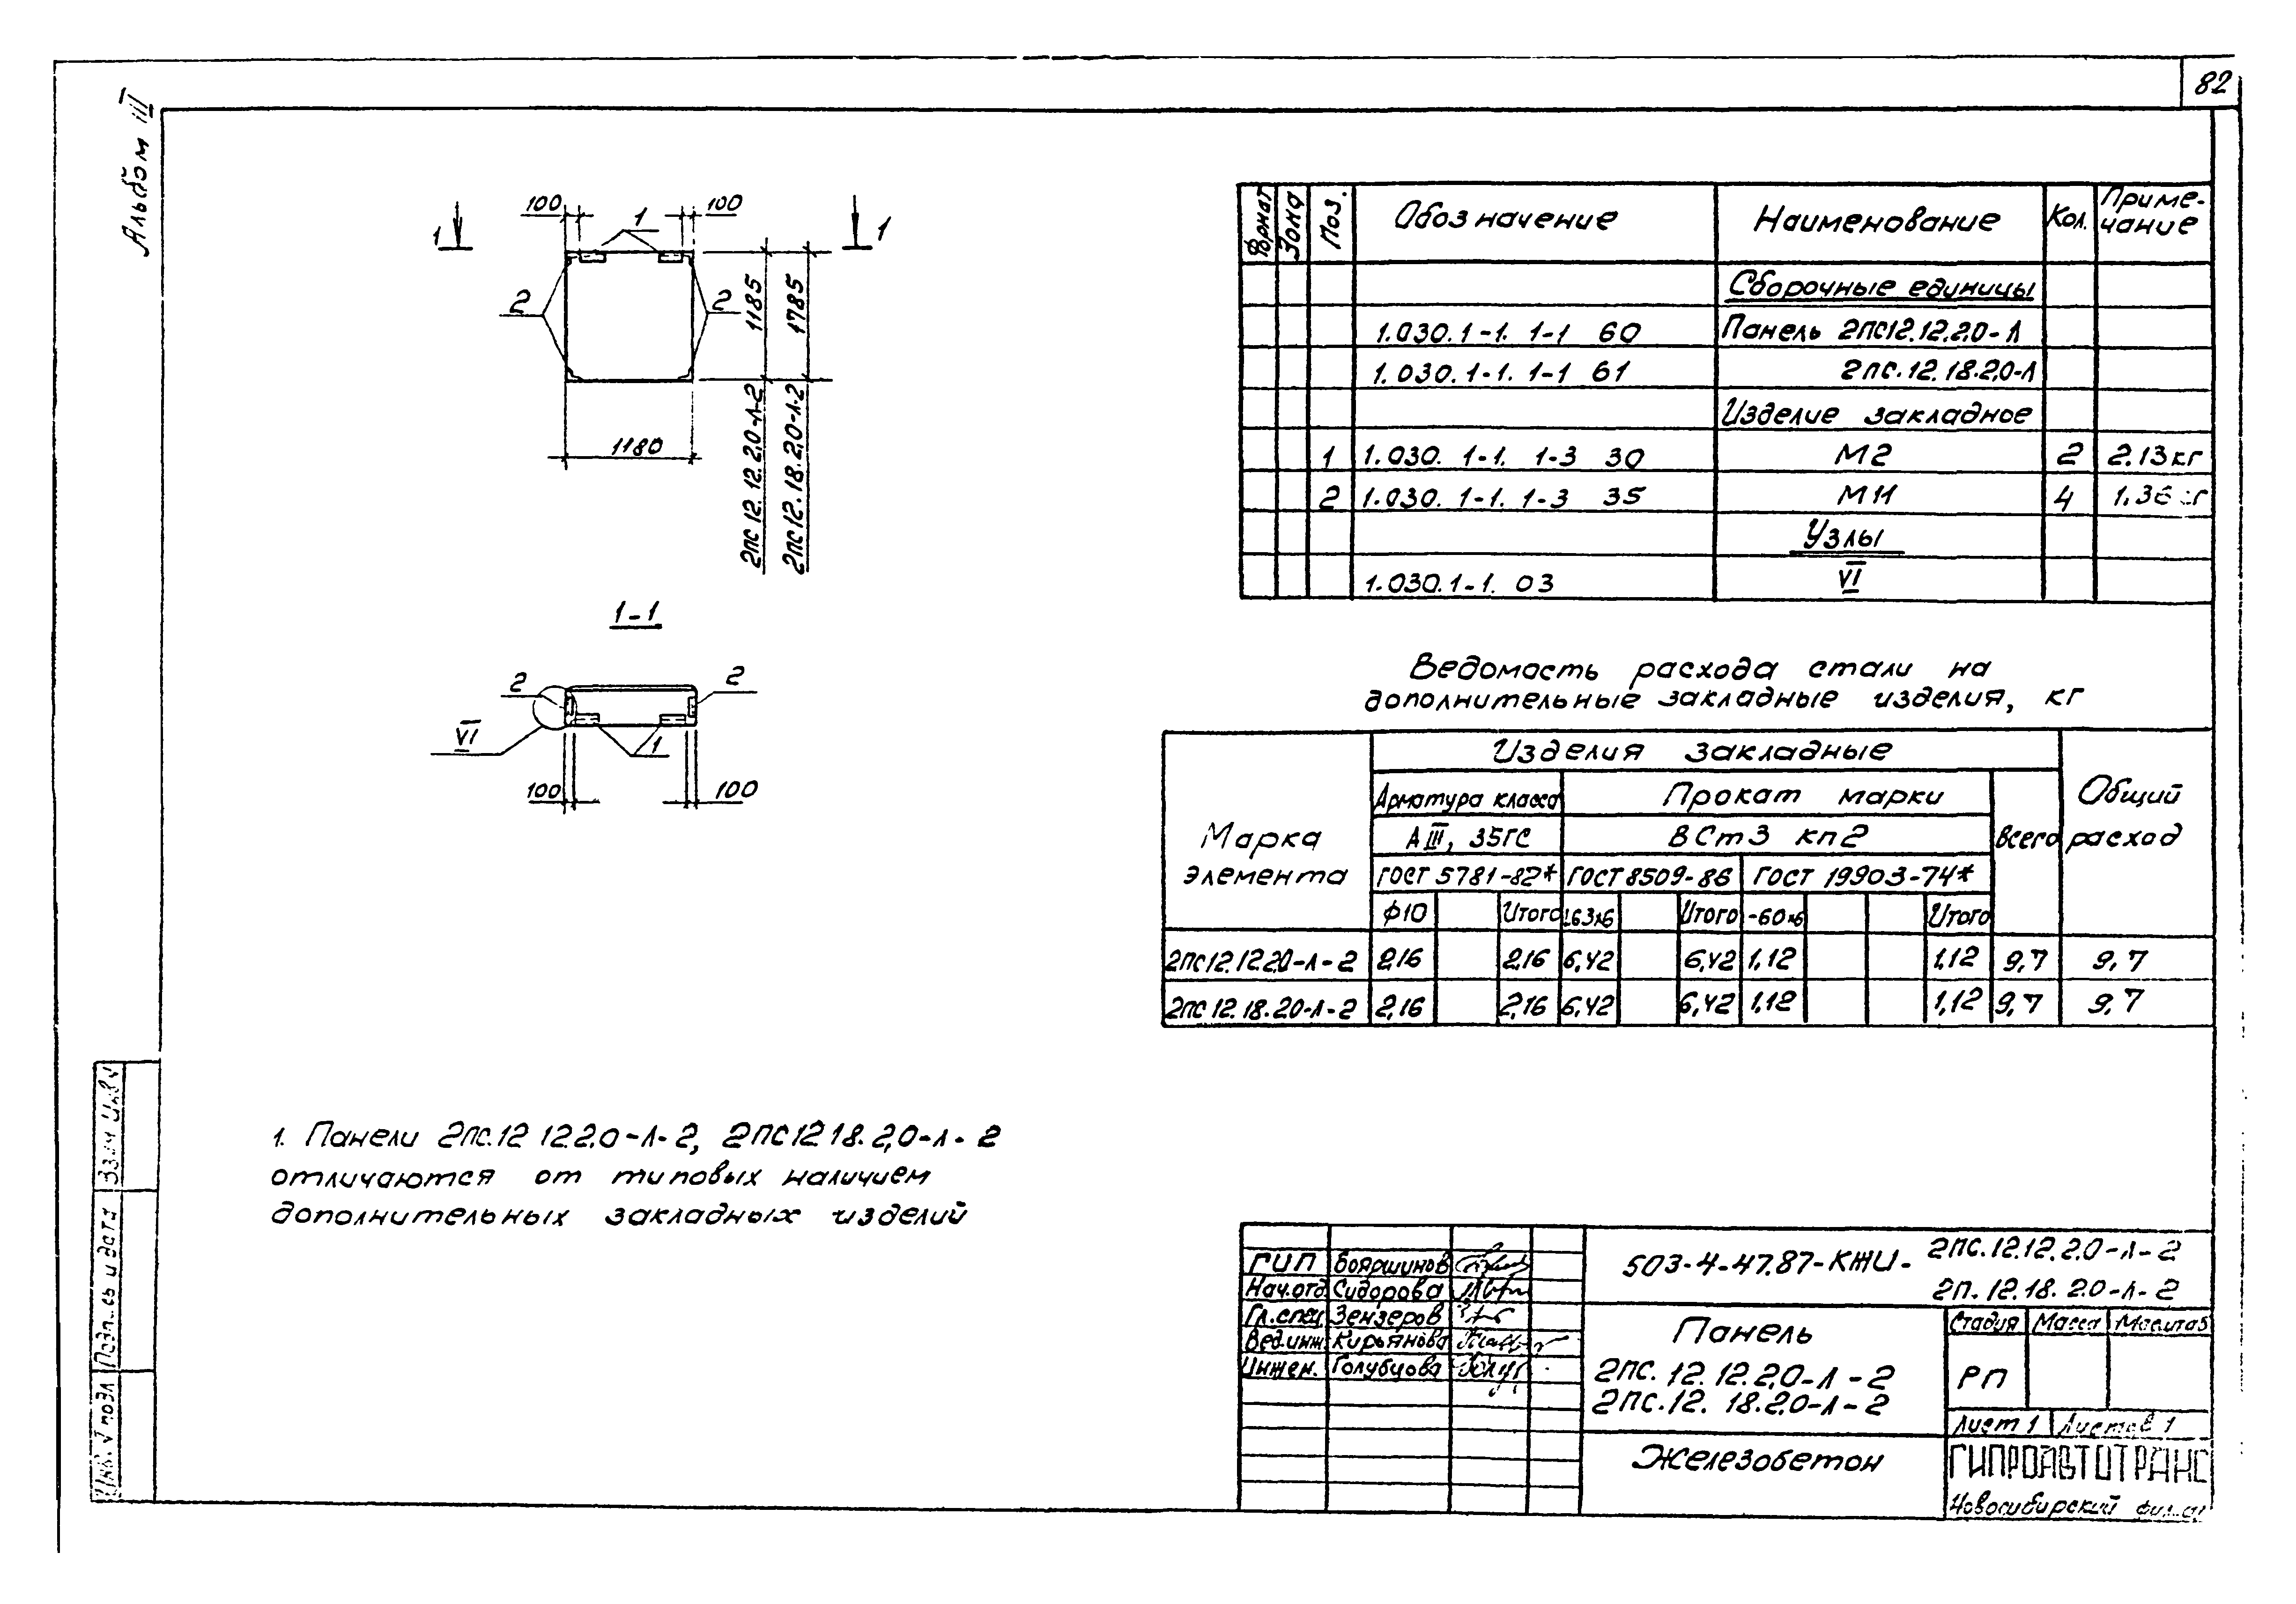 82
Альбом III
100 1 100
1 1
2 2
1185
1785
1180
2ПС12.12.2.0-Л-2
2ПС12.18.2,0-Л-2
1-1
2 2
VI
1
100 100
Формат Зона Поз. Обозначение Наименование Кол. Приме-
чание
Сборочные единицы
1.030.1-1. 1-1 60 Панель 2ПС12.12.2.0-Л
1.030.1-1. 1-1 61 2ПС.12.18.2,0-Л
Изделие закладное
1 1.030. 1-1. 1-3 30 М2 2 2.13кг
2 1.030. 1-1. 1-3 35 М11 4
Узлы
1.030.1-1. 03 VI
Ведомость расхода стали на
дополнительные закладные изделия, кг
Марка
элемента
Изделия закладные
Общий
расход
Арматура класса Прокат марки
Всего
АIII, 35ГС ВСт3 кп2
ГОСТ 5781-82* ГОСТ 8509-86 ГОСТ 19903-74*
Ф10 Итого L63х6 Итого -60х6 Итого
2ПС12.12.2.0-Л-2 2,16 2,16 6,42 6,42 1,12 1,12 9,7 9,7
2ПС12.18.20-Л-2 2,16 2,16 6,42 6,42 1,12 1,12 9,7 9,7
1. Панели 2ПС.12 12.2.0-Л-2, 2ПС12 18.2,0-Л-2
отличаются от типовых наличием
дополнительных закладных изделий
Взам Инв.№
Подпись и дата
Инв. № подл
ГИП Бояршинов
Нач.отд. Сидорова
Гл.спец Зензеров
Вед.инж. Кирьянова
Инжен. Голубцова
503-4-47.87-КЖИ- 2ПС.12.12.2.0-Л-2
2П.12.18.2.0-Л-2
Панель
2ПС.12.12.2.0-Л-2
2ПС.12.18.2.0-Л-2
Стадия Масса Масштаб
РП
Лист 1 Листов 1
Железобетон
ГИПРОАВТОТРАНС
Новосибирский филиал